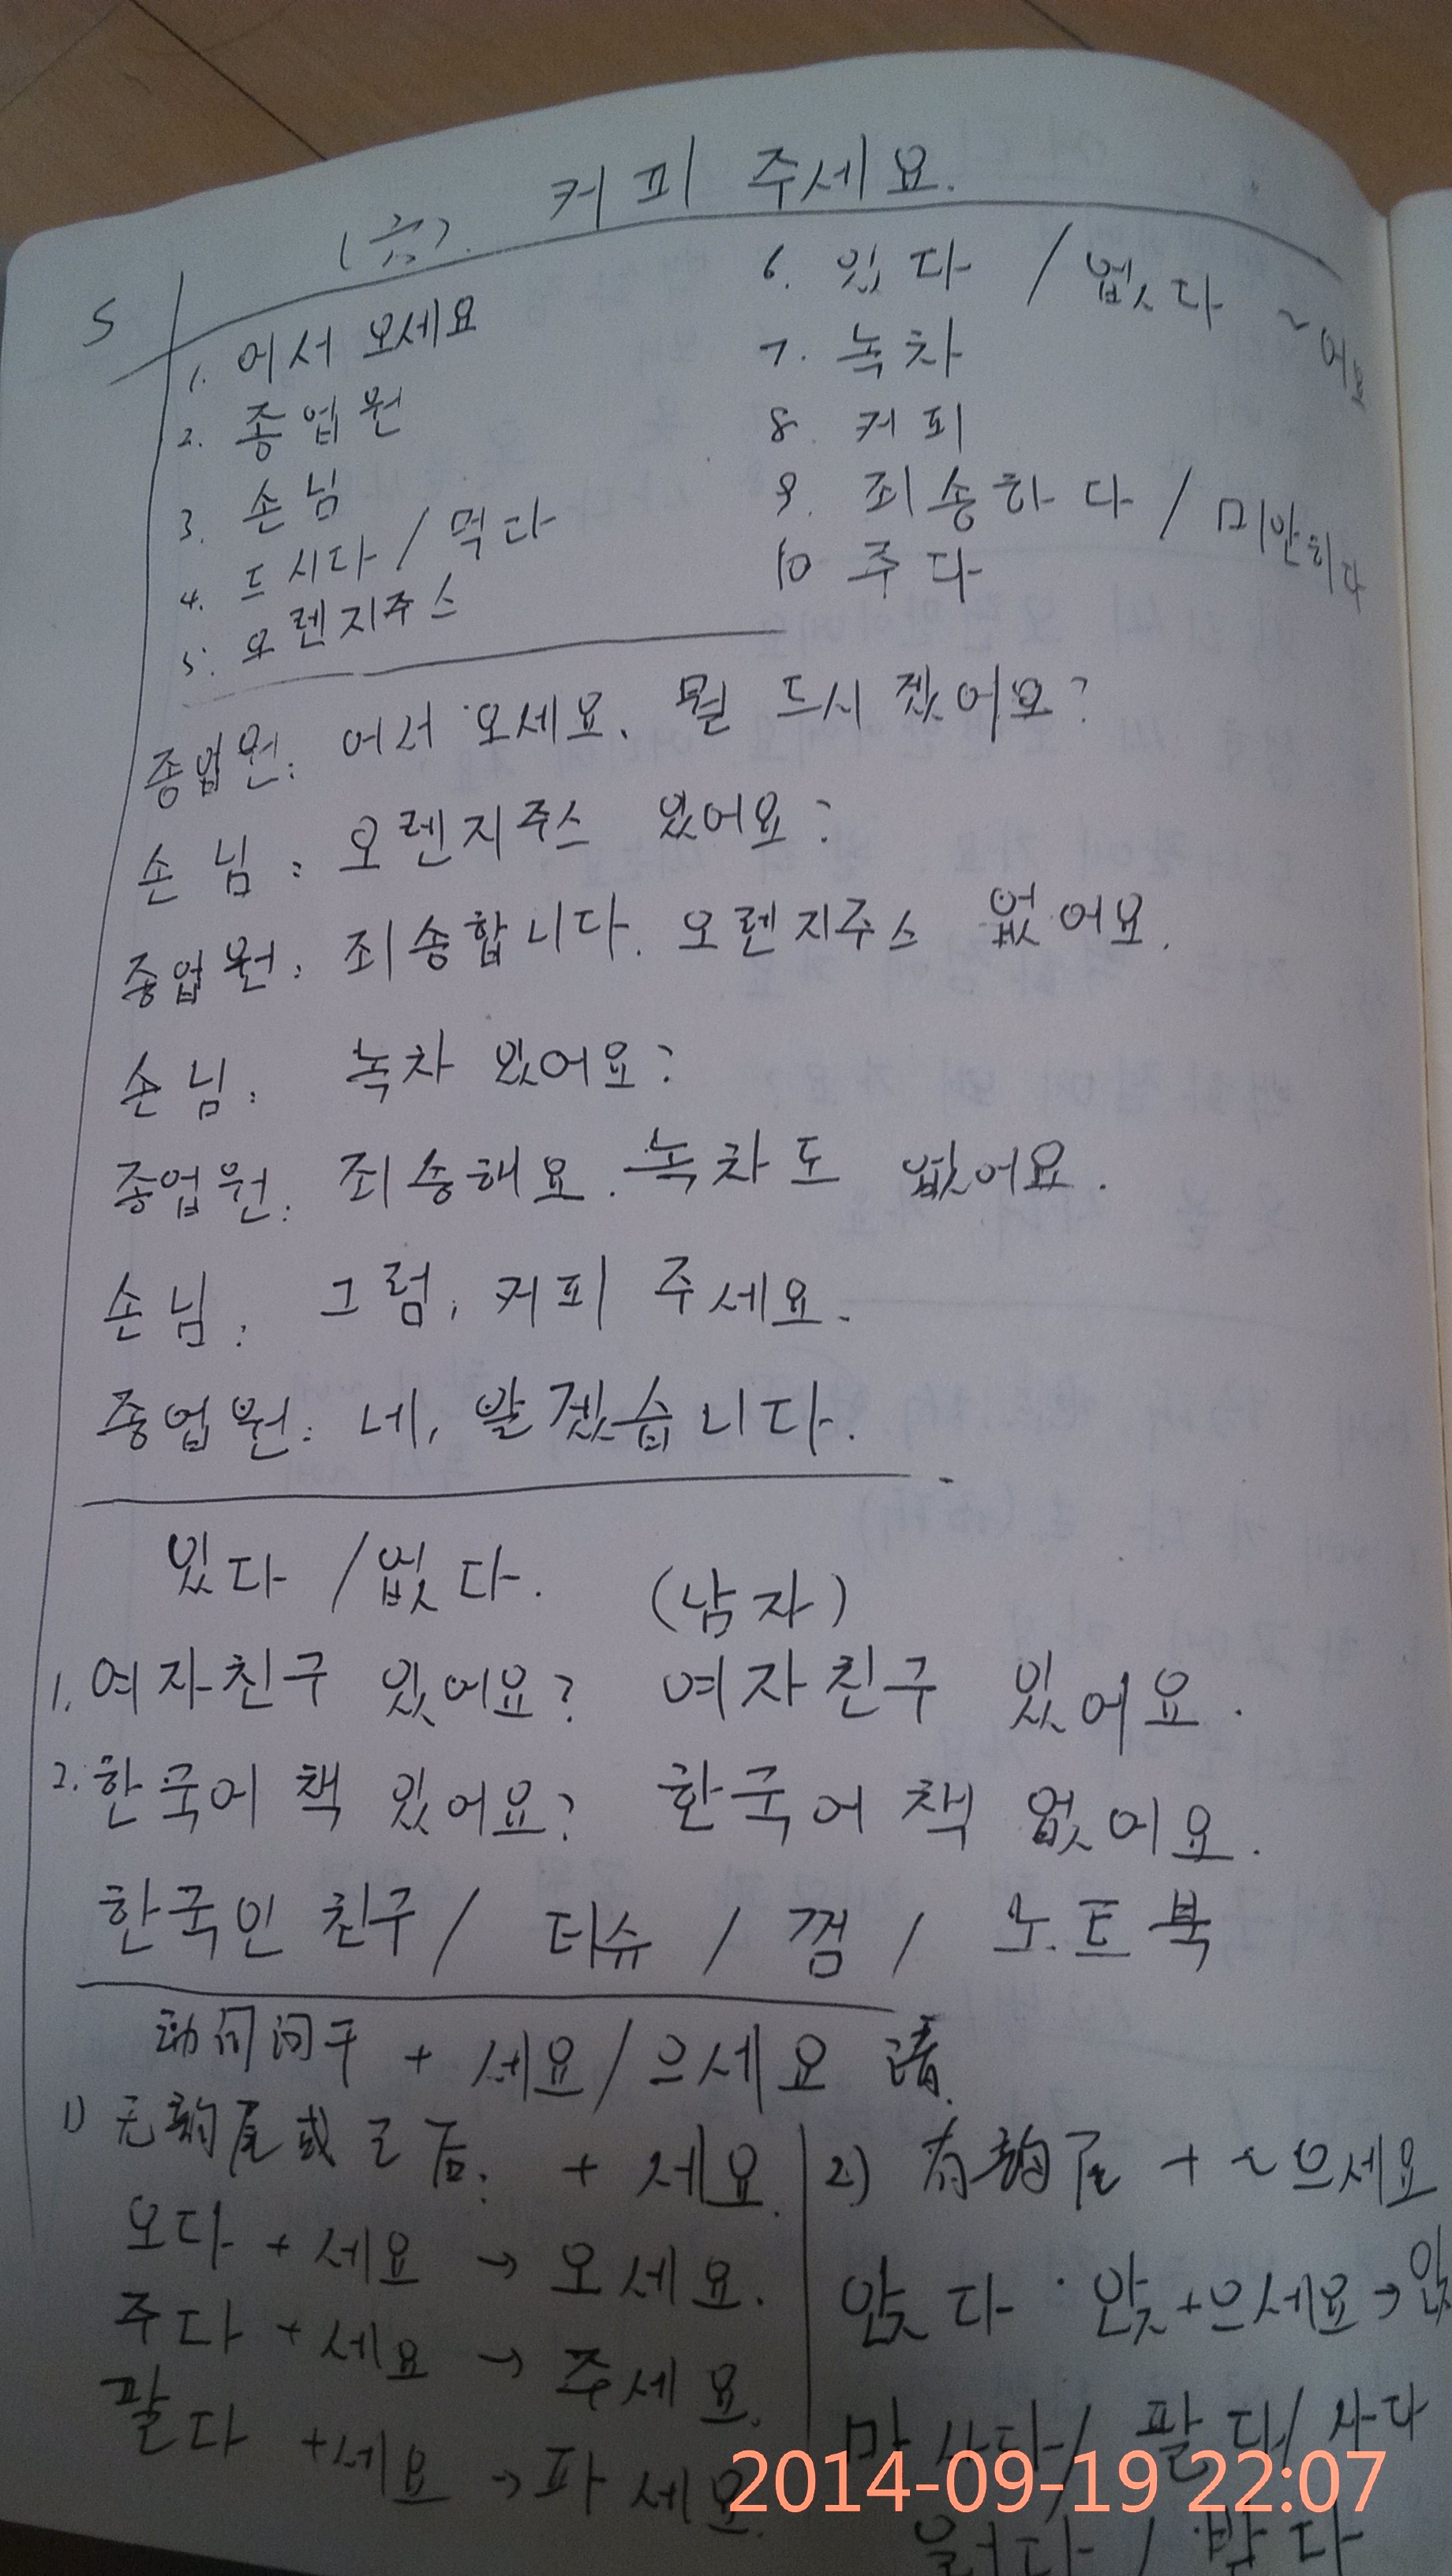 커피 주세요.
5
1. 어서 오세요
2. 종업원
3. 손님
4. 드시다 / 먹다
5. 오렌지주스
6. 있다 / 없다 ~어요
7. 녹차
8. 커피
9. 죄송하다 / 미안하다
10 주다
종업원: 어서 오세요. 뭘 드시겠어요?
손님: 오렌지주스 있어요?
종업원: 죄송합니다. 오렌지주스 없어요.
손님: 녹차 있어요?
종업원: 죄송해요. 녹차도 없어요.
손님: 그럼, 커피 주세요.
종업원: 네, 알겠습니다.
있다 / 없다.
(남자)
1. 여자친구 있어요? 여자친구 있어요.
2. 한국어 책 있어요? 한국어 책 없어요.
한국인 친구 / 티슈 / 껌 / 노트북
动词词干 + 세요/으세요 请.
1) 无韵尾或ㄹ后: + 세요.
오다 + 세요 → 오세요.
주다 + 세요 → 주세요.
팔다 + 세요 → 파세요.
2) 有韵尾 + ~으세요
앉다: 앉+으세요→
팔다/ 사다
2014-09-19 22:07